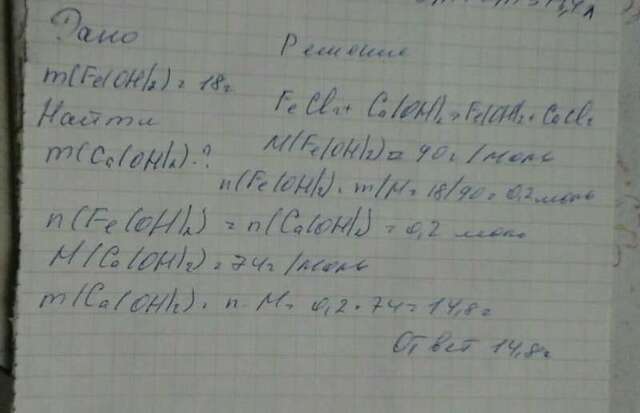 Дано
Решение
m(Fe(OH)2) = 18г
FeCl2 + Ca(OH)2 = Fe(OH)2 + CaCl2
Найти
M(Fe(OH)2) = 90г/моль
m(Ca(OH)2) - ?
n(Fe(OH)2) = m/M = 18/90 = 0,2 моль
n(Fe(OH)2) = n(Ca(OH)2) = 0,2 моль
M(Ca(OH)2) = 74г/моль
m(Ca(OH)2) = n · M = 0,2 · 74 = 14,8г
Ответ 14,8г